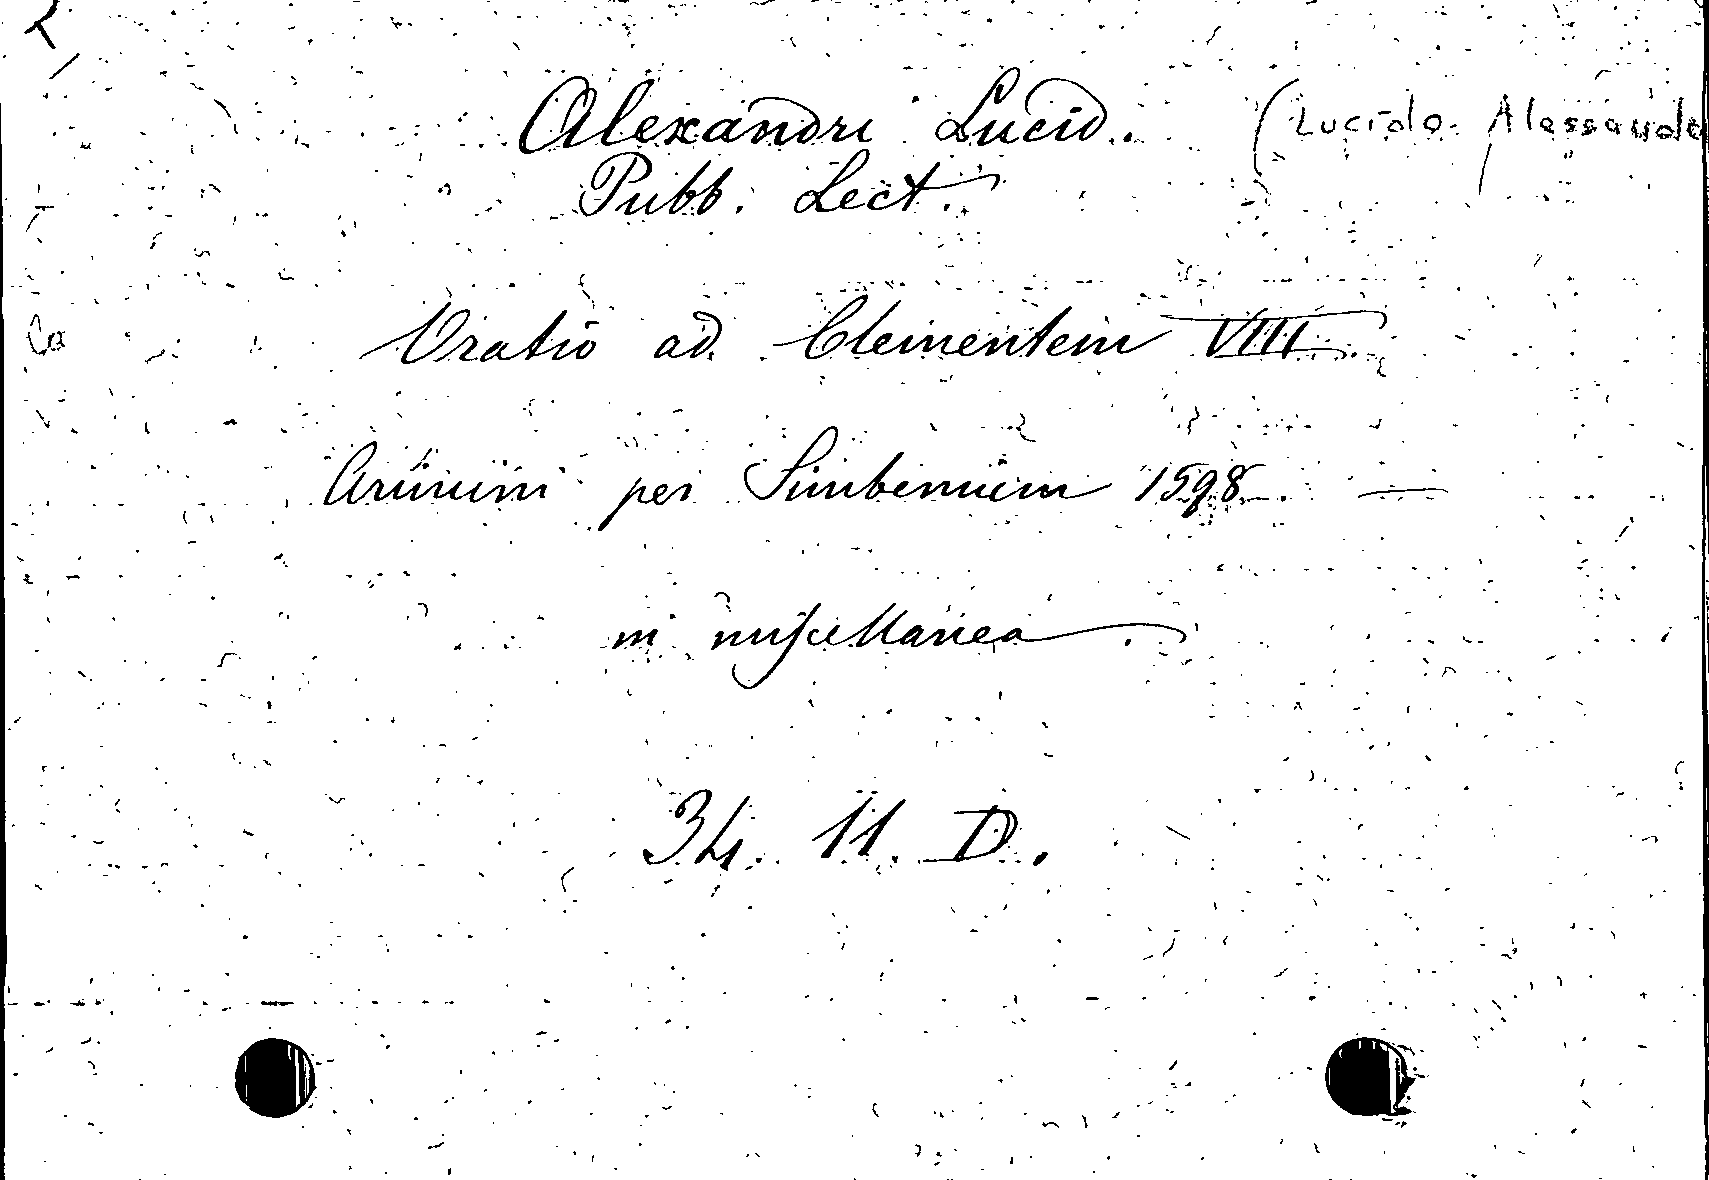 Alexandri Lucid. (Lucido Alessandr
Pubb. Lect.
Oratio ad Clementem VIII
Arimini per Simbenium 1598 —
in miscellanea
34. 11. D.